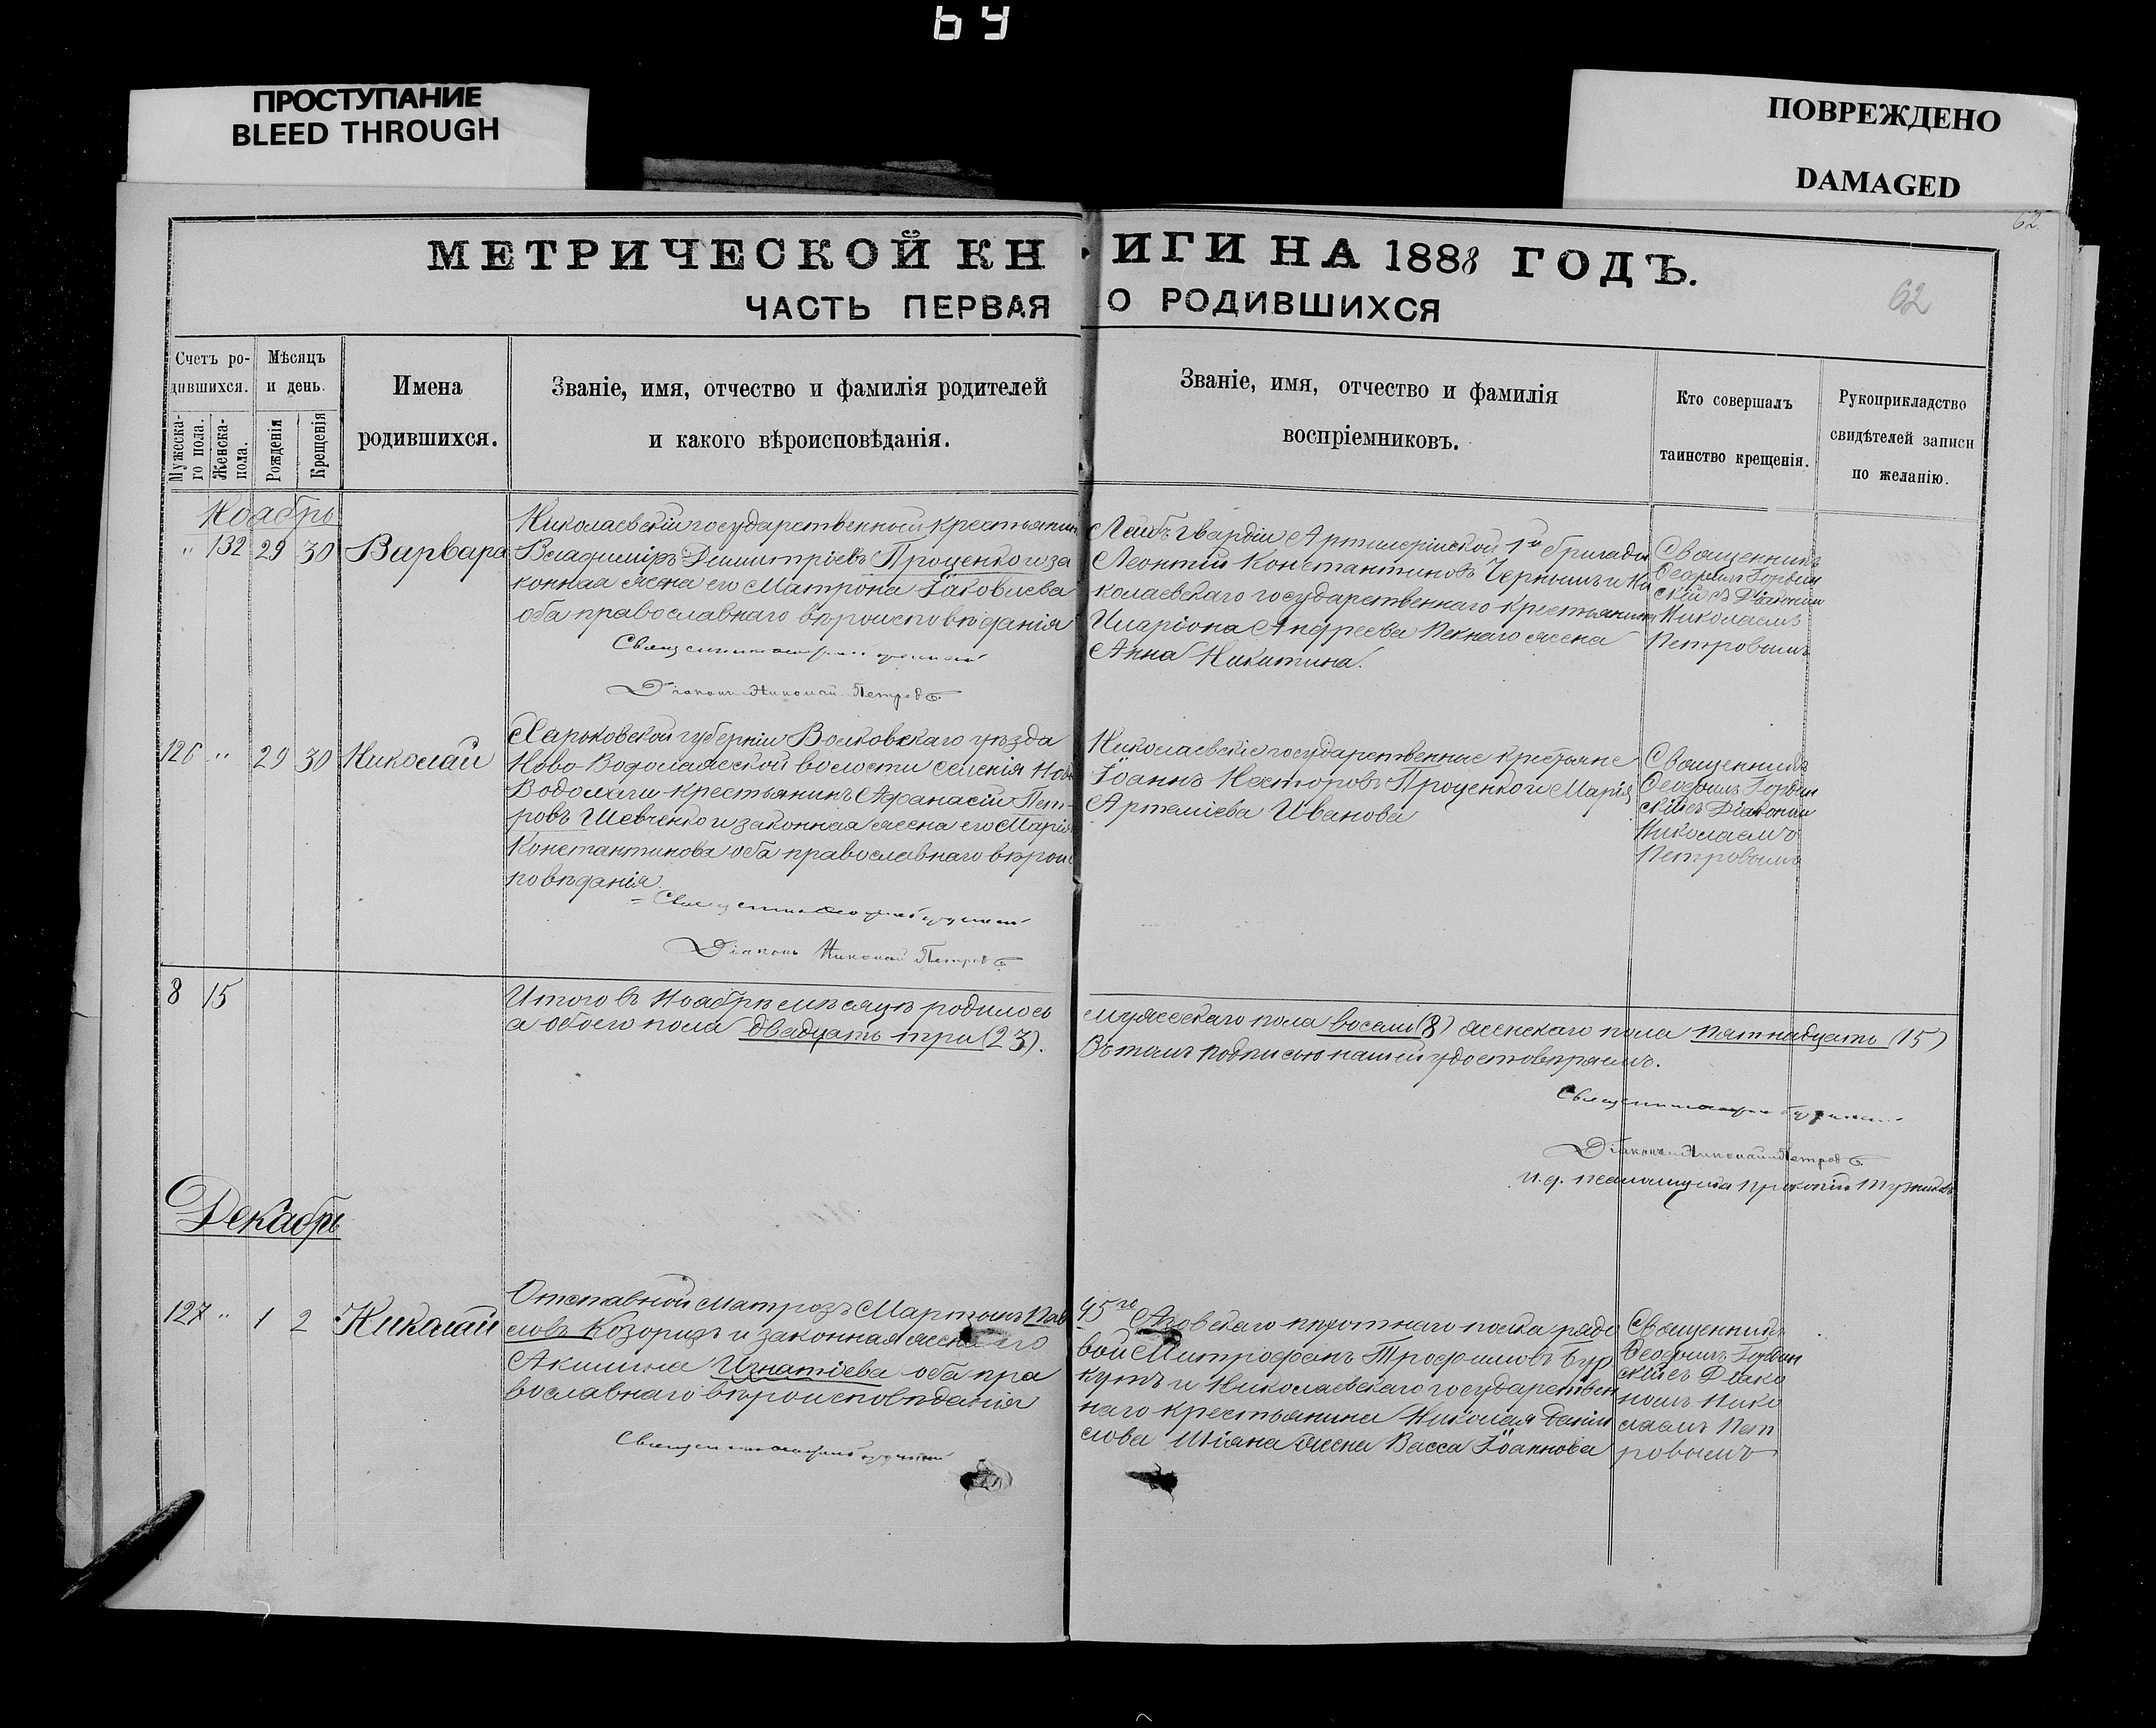 64
ПРОСТУПАНИЕ
BLEED THROUGH
ПОВРЕЖДЕНО
DAMAGED
62
62
МЕТРИЧЕСКОЙ КНИГИ НА 1888 ГОДЪ.
ЧАСТЬ ПЕРВАЯ О РОДИВШИХСЯ
Счетъ ро-
дившихся.
Мужеска-
го пола.
Женска-
пола.
Мѣсяцъ
и день.
Рожденія
Крещенія
Имена
родившихся.
Званіе, имя, отчество и фамилія родителей
и какого вѣроисповѣданія.
Званіе, имя, отчество и фамилія
воспріемниковъ.
Кто совершалъ
таинство крещенія.
Рукоприкладство
свидѣтелей записи
по желанію.
Ноябрь
" 132 29 30 Варвара
Николаевскій государственный крестьянинъ
Владиміръ Димитріевъ Проценко и за
конная жена его Матрона Іаковлева
оба православнаго вѣроисповѣданія
Священникъ
Діаконъ Николай Петровъ
Лейбъ Гвардіи Артилерійской 1й бригады
Леонтій Константиновъ Чернышъ и Ни
колаевскаго государственнаго крестьянина
Иларіона Андреева жена
Анна Никитина.
Священникъ
скій съ Діакономъ
Николаемъ
Петровымъ
126 " 29 30 Николай
Харьковской губерніи Волковскаго уѣзда
Ново-Водолажской волости селенія Ново
Водолаги крестьянинъ Афанасій Пет-
ровъ Шевченко и законная жена его Марія
Константинова оба православнаго вѣроис
повѣданія
Священникъ
Діаконъ Николай Петровъ
Николаевскіе государственные крестьяне
Іоаннъ Несторовъ Проценко и Марія
Артеміева Иванова
Священникъ
скій съ Діакономъ
Николаемъ
Петровымъ
8 15
Итого въ Ноябрѣ мѣсяцѣ родилось
а обоего пола двадцать три (23).
мужескаго пола восемь (8) женскаго пола пятнадцать (15)
Въ томъ подписью нашей удостовѣряемъ.
Священникъ
Діаконъ Николай Петровъ
и. д. псаломщика
Декабрь
127 " 1 2 Николай
Отставной матрозъ Мартынъ Пав
ловъ Козоризъ и законная жена его
Акилина Игнатіева оба пра
вославнаго вѣроисповѣданія
Священникъ
45го Азовскаго пѣхотнаго полка рядо
вой Митрофанъ Трофимовъ Бур
кутъ и Николаевскаго государствен
наго крестьянина Николая Даніи
лова жена Васса Іоаннова
Священникъ
скій съ Діако
номъ Нико
лаемъ Пет
ровымъ